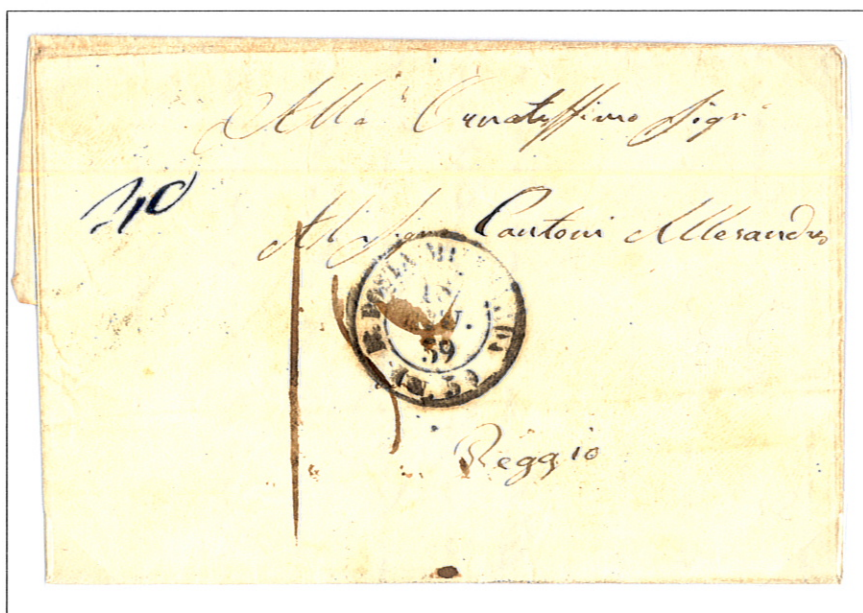 Alla Ornatissimo Sigr
40
Al Sigr Cantoni Allesandro
R. POSTA MILITARE
18
GIU.
59
(N. 5)
Reggio